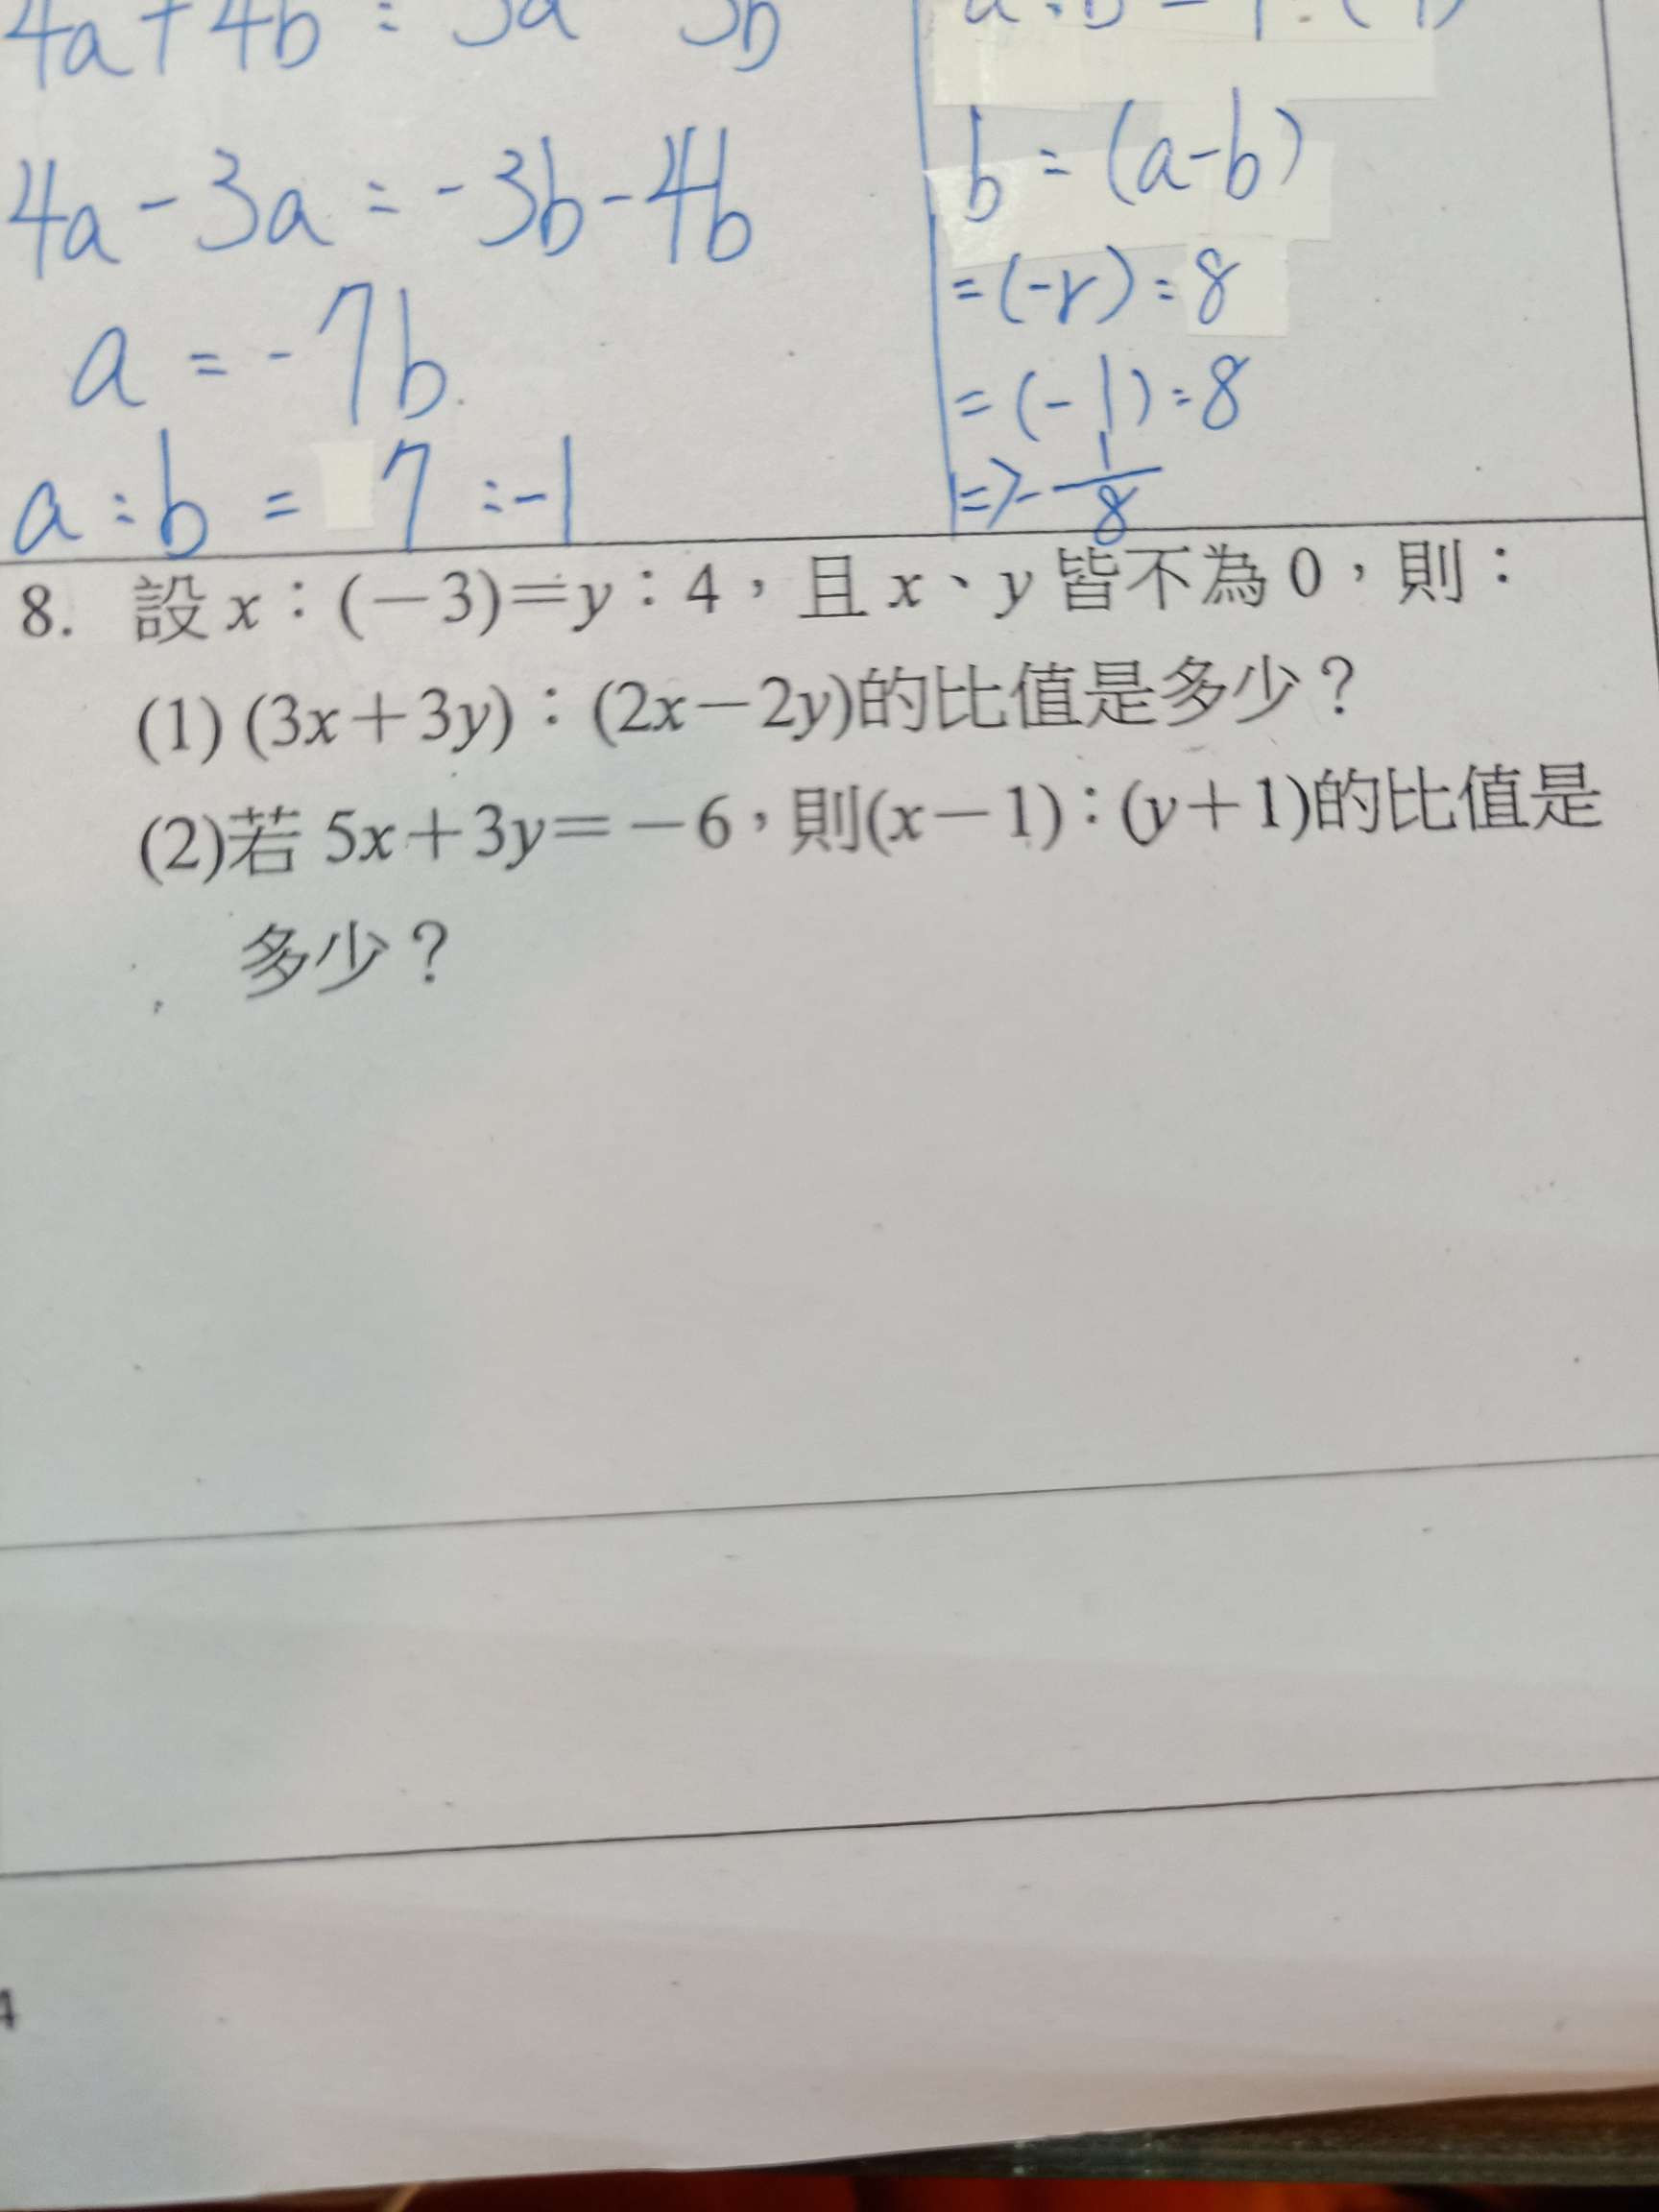 4a+4b = 3a 3b
4a-3a = -3b-4b
a = -7b.
a:b = 7:-1
b = (a-b)
=(-r):8
=(-1):8
=>-1/8
8. 設 x：(－3)＝y：4，且 x、y 皆不為 0，則：
(1) (3x＋3y)：(2x－2y)的比值是多少？
(2)若 5x＋3y＝－6，則(x－1)：(y＋1)的比值是
多少？
4